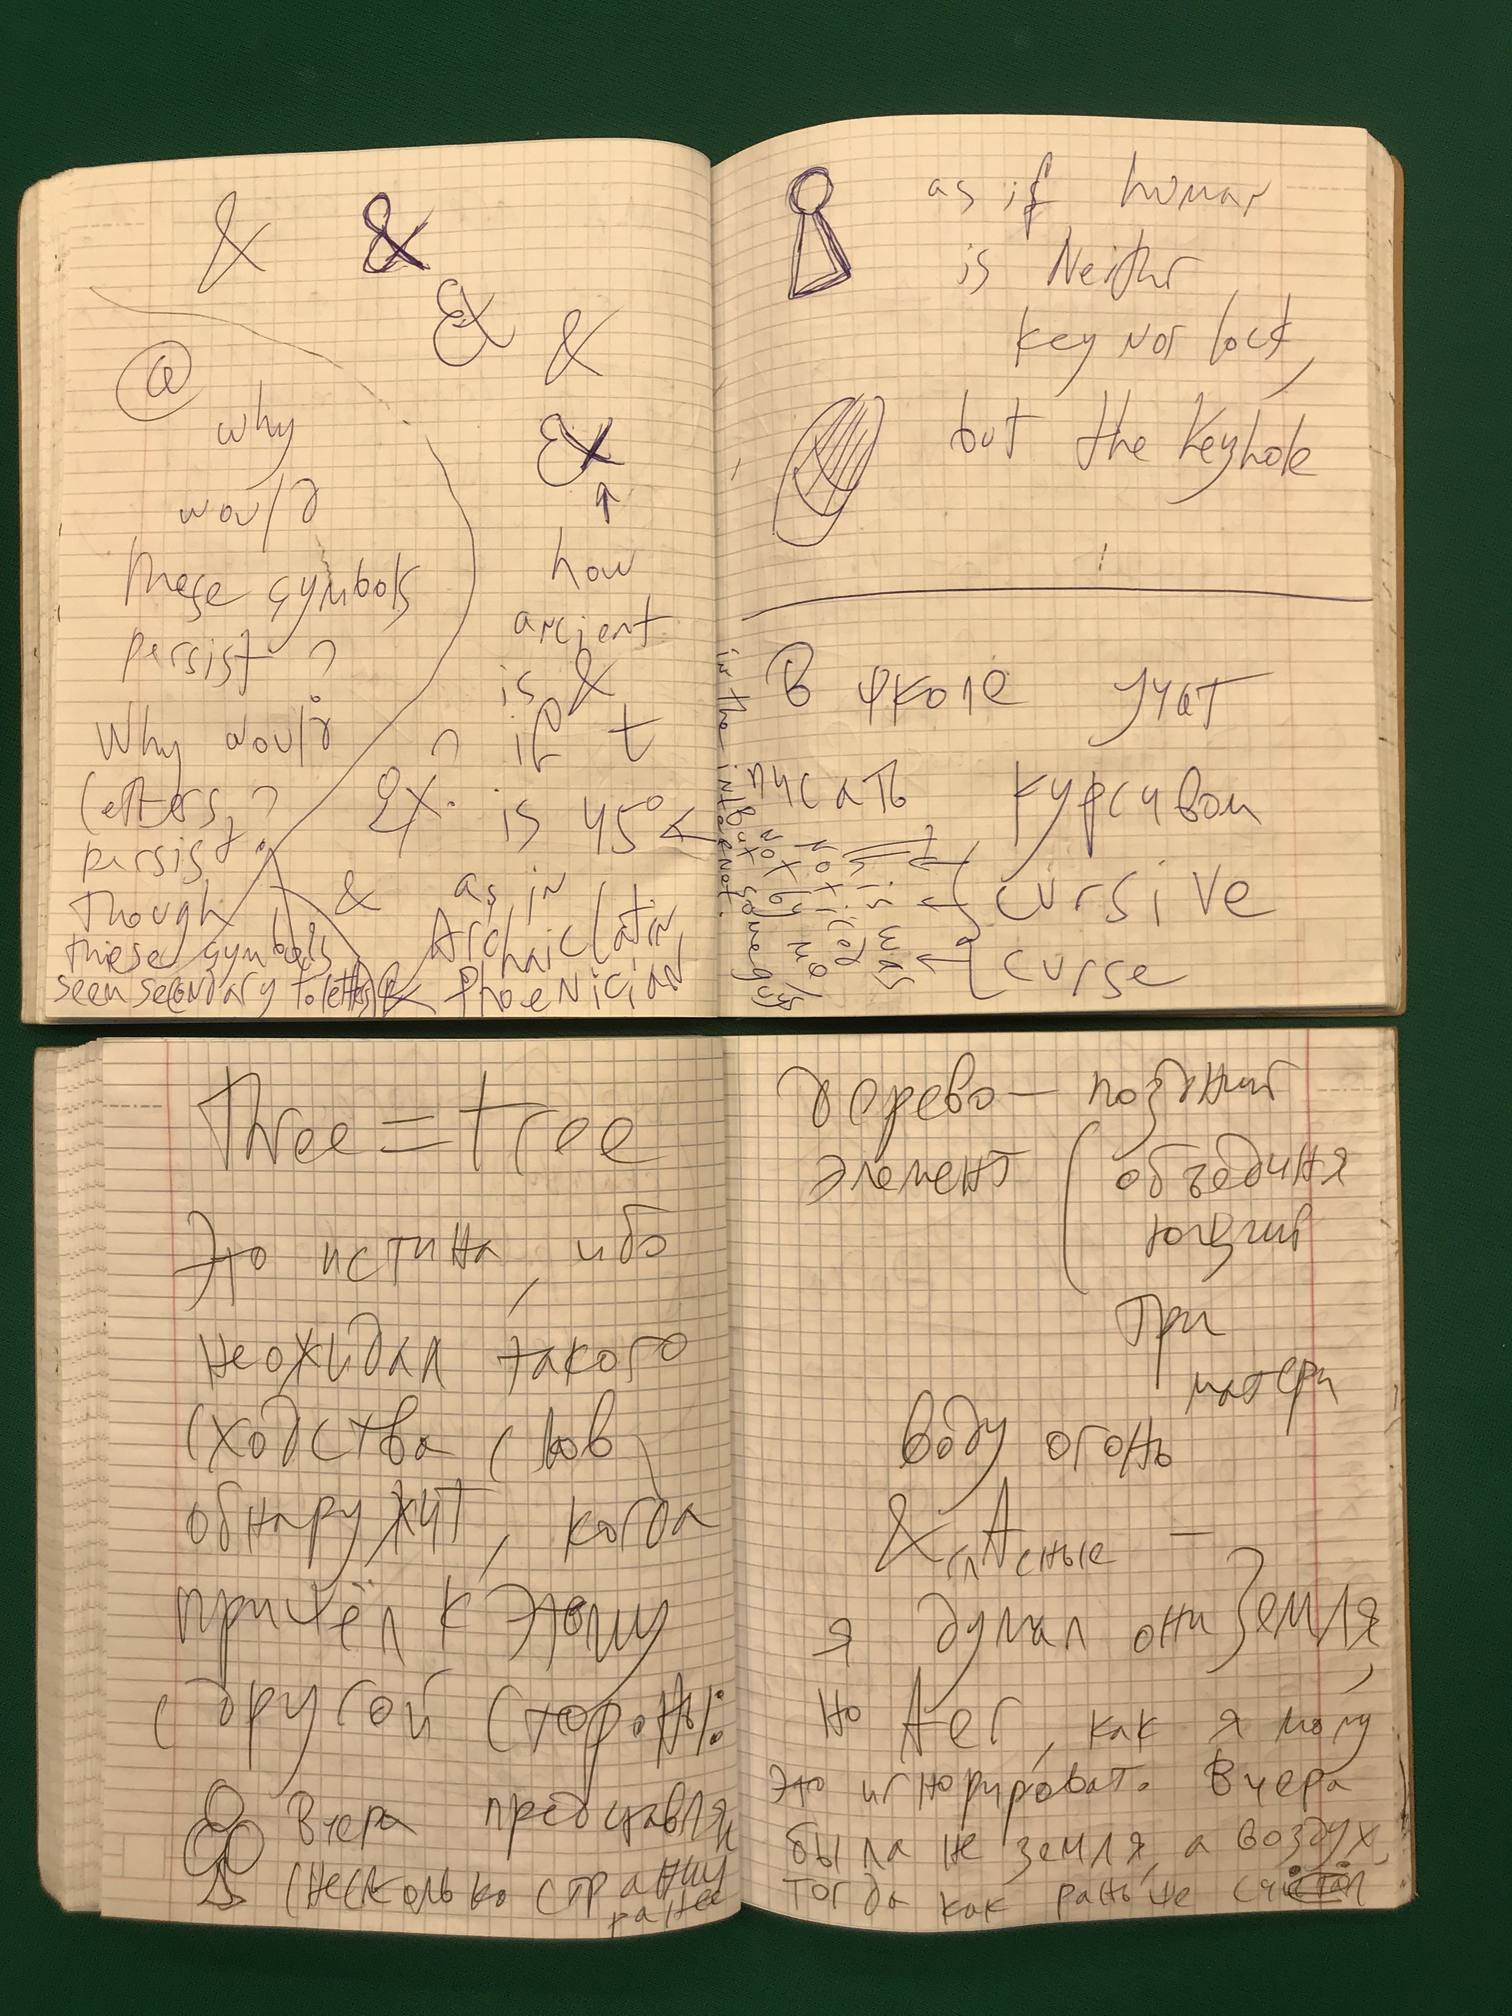 & &
& &
&
@
why
would
these symbols
persist?
Why would
letters
persist?
Though
these symbols
seem secondary to letters
↑
how
ancient
is &
? if t
&. is 45°
& as in
Archaic Latin,
& Phoenician
as if human
is Neither
key nor lock,
but the Keyhole
В школе учат
писать курсивом
cursive
curse
this was
noticed
not by me
but someguy
in the internet.
Three = tree
Это истина, ибо
неожидал такого
сходства слов
обнаружит, когда
пришёл к этому
с другой стороны:
Вчера представлял
(несколько страниц
ранее
дерево — поздний
элемент (объединя
ющий
три
матери
воду огонь
& глАсные —
я думал они Земля,
но Aer, как я могу
это игнорироват. Вчера
была не земля, а воздух,
тогда как раньше